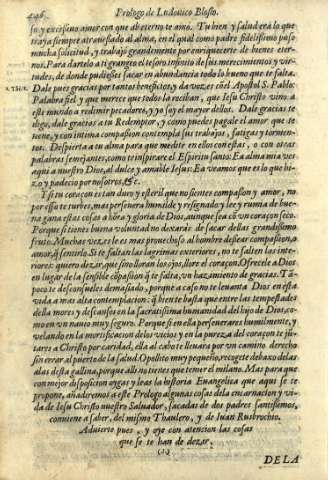 446 Prologo de Ludouico Blosio.
su y excessiuo amor con que ab eterno te amò. Tu bien y salud era lo que
traya siempre atrauessado al alma, en el qual como padre fidelissimo puso
mucha solicitud, y trabajo grandemente por enriquecerte de bienes eter-
nos. Para dartelo a ti grangeo el tesoro infinito de sus merecimientos y virtu-
des, de donde pudiesses sacar en abundancia todo lo bueno que te falta.
Dale pues gracias por tantos beneficios, y da vozes cõ el Apostol S. Pablo:
Palabra fiel y que merece que todos la reciban, que Iesu Christo vino a
este mundo a redimir pecadores, y yo soy el mayor dellos. Dale gracias te
digo, dale gracias a tu Redemptor, y como puedes pagale el amor que te
tiene, y con intima compassion contempla sus trabajos, fatigas y tormen-
tos. Despierta a tu alma para que medite en ellos con estas, o con otras
palabras semejantes, como te inspirare el Espiritu santo. Ea alma mia ve
aqui a nuestro Dios, al dulce y amable Iesus: Ea veamos que es lo que hi-
zo y padecio por nosotros, &c.
Y si tu coraçon es tan duro y esteril que no sientes compassion y amor, no
por esso te turbes, mas perseuera humilde y resignado y lee y rumia de bue-
na gana estas cosas a hõra y gloria de Dios, aunque sea cõ vn coraçon seco.
Porque si tienes buena voluntad no dexarás de sacar dellas grandissimo
fruto. Muchas vezes le es mas prouechoso al hombre dessear compassion, o
amor, q̃ sentirlo. Si te faltan las lagrimas exteriores, no te falten las inte-
riores: quiero dezir, que si no lloran los ojos, llore el coraçon. Ofrecele a Dios
en lugar de la sensible cõpasion q̃ te falta, vn hazimiento de gracias. Tã-
poco te desconsueles demasiado, porque a caso no te leuanta Dios en esta
vida a mas alta contemplacion: q̃ bien te basta que entre las tempestades
della mores y descanses en la sacratissima humanidad del hijo de Dios, co-
mo en vn nauio muy seguro. Porque si en ella perseuerares humilmente, y
velando en la mortificacion de los vicios y en la pureza del coraçon te ju-
tares a Christo por caridad, ella al cabo te lleuara por vn camino derecho
sin errar al puerto de la salud. O pollito muy pequeño, recogete debaxo de las
alas desta gallina, porque alli no tienes que temer el milano. Mas para que
con mejor disposicion oygas y leas la historia Euangelica que aqui se te
propone, añadiremos a este Prologo algunas cosas de la encarnacion y vi-
da de Iesu Christo nuestro Saluador, sacadas de dos padres santissimos,
conuiene a saber, del mismo Thaulero, y de Iuan Rusbrochio.
Aduierte pues, y oye con atencion las cosas
que se te han de dezir.
DE LA